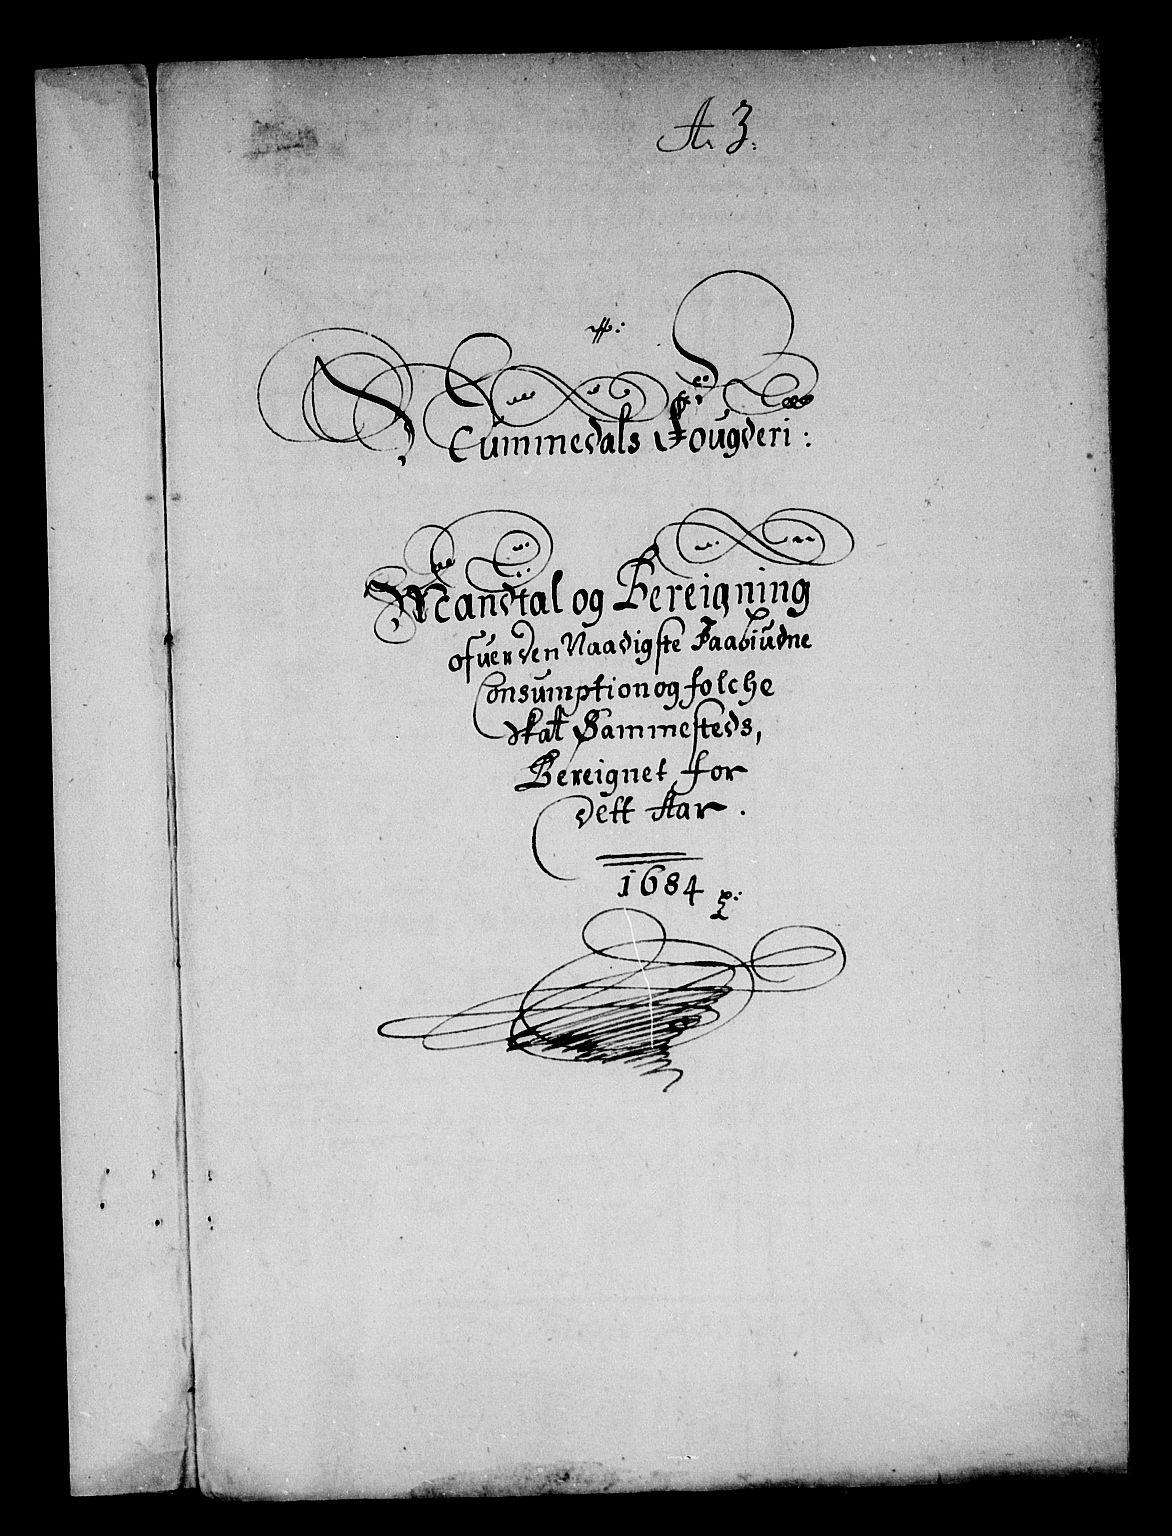 A. 3.
Nummedals Fougderi:
Mandtal og Bereigning
ofuer den Naadigste Paabiudne
Consumption og folche
skat Sammesteds,
Bereignet for
dett Aar.
1684